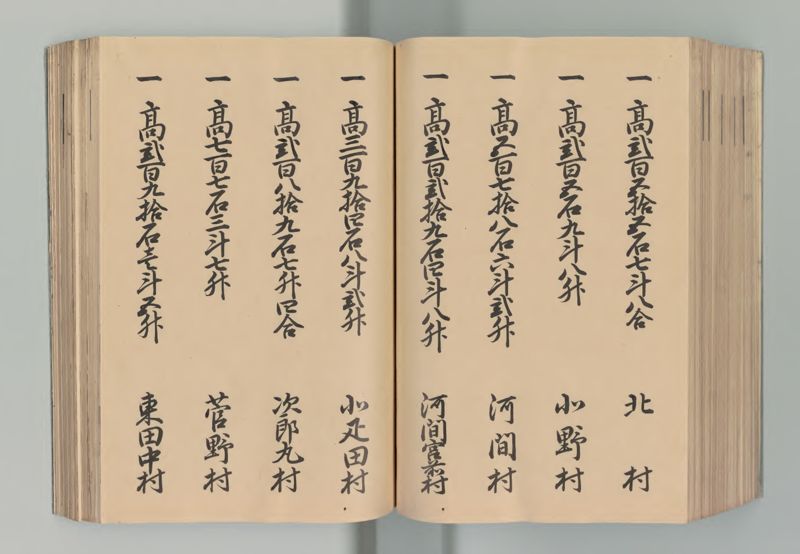 一 高弐百五拾五石七斗八合 北村
一 高弐百五石九斗八升 小野村
一 高五百七拾八石六斗弐升 河間村
一 高弐百弐拾九石四斗八升 河間宮前村
一 高三百九拾四石八斗弐升 小疋田村
一 高弐百八拾九石七升四合 次郎丸村
一 高七百七石三斗七升 菅野村
一 高弐百九拾石壱斗五升 東田中村